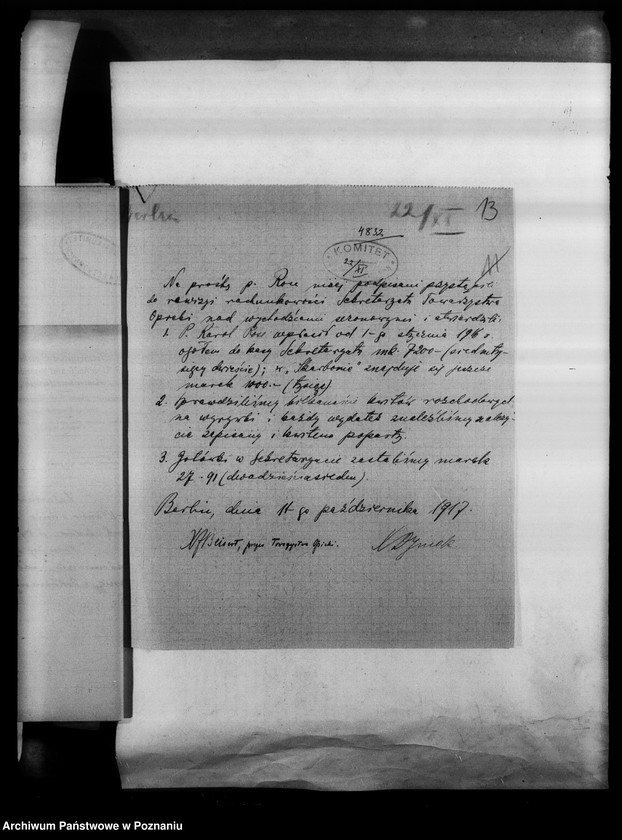 22/XI 13
4832
KOMITET
22/XI
11
Na prośbę p. Rose niżej podpisani przystąpili
do rewizyi rachunkowości Sekretaryatu Towarzystwa
Opieki nad wychodźcami sezonowymi i stwierdzili:
1. P. Karol Rose wpłacił od 1-go stycznia 1916
ogółem do kasy Sekretaryatu mk. 7200.- (siedmty-
sięcy dwieście); w „Skarbonie" znajduje się jeszcze
marek 1000.- (tysiąc)
2. Sprawdziliśmy kilkanaście kwitów rozchodowych
na wyrywki i każdy wydatek znaleźliśmy należy-
cie zapisany i kwitem poparty.
3. Gotówki w Sekretaryacie zastaliśmy marek
27.91 (dwadzieściasiedem).
Berlin, dnia 11-go października 1917.
prezes Towarzystwa Opieki.
Archiwum Państwowe w Poznaniu